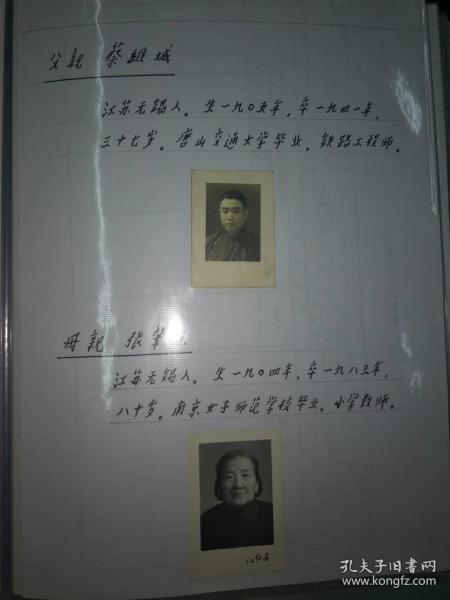 父親 蔡維城
江苏无锡人。生一九〇五年，卒一九四一年，
三十七岁。唐山交通大学毕业。铁路工程师。
母親 張肇
江苏无锡人。生一九〇四年，卒一九八三年，
八十岁。南京女子师范学校毕业。小学教师。
江红音
孔夫子旧书网
www.kongfz.com